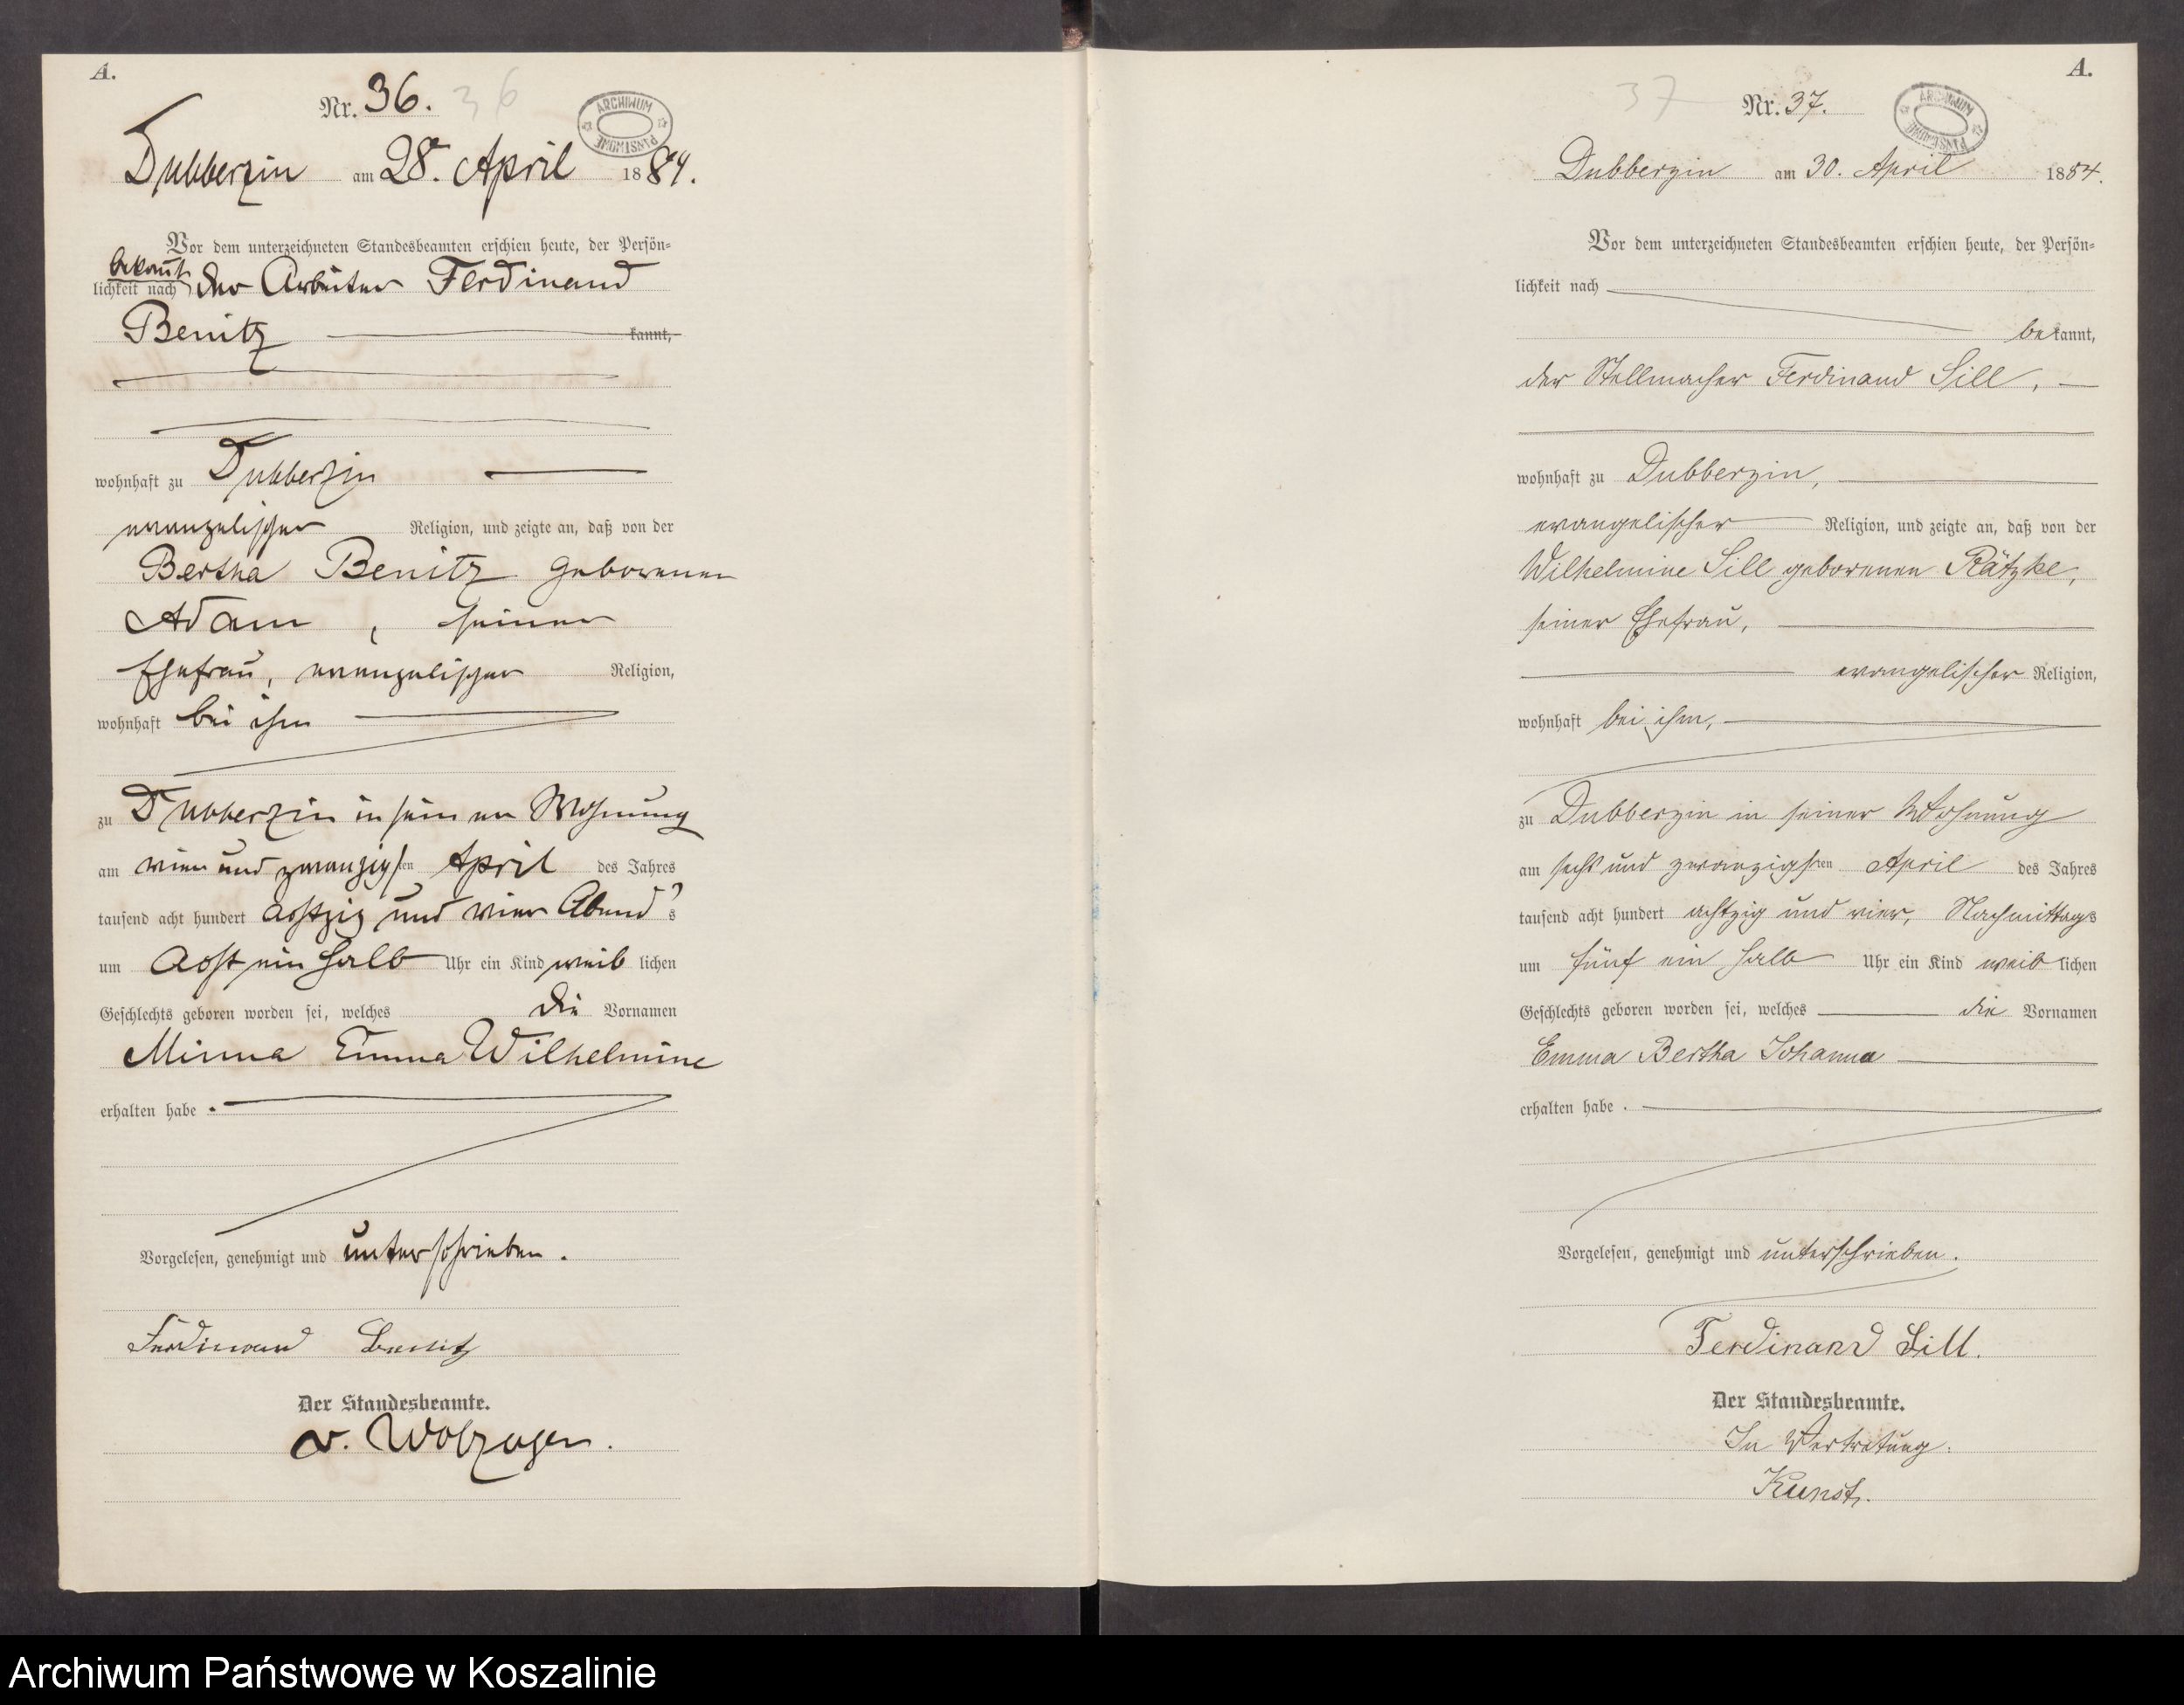 A.
Nr. 36. 36
ARCHIWUM PAŃSTWOWE
Dubberzin am 28. April 1884.
Vor dem unterzeichneten Standesbeamten erschien heute, der Persön=
bekannt
lichkeit nach der Arbeiter Ferdinand
Benitz kannt,
wohnhaft zu Dubberzin
evangelischer Religion, und zeigte an, daß von der
Bertha Benitz geborenen
Adam, seiner
Ehefrau, evangelischer Religion,
wohnhaft bei ihm
zu Dubberzin in seiner Wohnung
am vier und zwanzigsten April des Jahres
tausend acht hundert achtzig und vier Abends
um acht ein halb Uhr ein Kind weiblichen
Geschlechts geboren worden sei, welches die Vornamen
Minna Emma Wilhelmine
erhalten habe.
Vorgelesen, genehmigt und unterschrieben.
Ferdinand Benitz
Der Standesbeamte.
v. Wolzogen.
A.
37 Nr. 37.
ARCHIWUM PAŃSTWOWE
Dubberzin am 30. April 1884.
Vor dem unterzeichneten Standesbeamten erschien heute, der Persön=
lichkeit nach
bekannt,
der Stellmacher Ferdinand Sill,
wohnhaft zu Dubberzin,
evangelischer Religion, und zeigte an, daß von der
Wilhelmine Sill geborenen Rätzke,
seiner Ehefrau,
evangelischer Religion,
wohnhaft bei ihm,
zu Dubberzin in seiner Wohnung
am sechs und zwanzigsten April des Jahres
tausend acht hundert achtzig und vier, Nachmittags
um fünf ein halb Uhr ein Kind weiblichen
Geschlechts geboren worden sei, welches die Vornamen
Emma Bertha Johanna
erhalten habe.
Vorgelesen, genehmigt und unterschrieben.
Ferdinand Sill.
Der Standesbeamte.
In Vertretung.
Kunst.
Archiwum Państwowe w Koszalinie